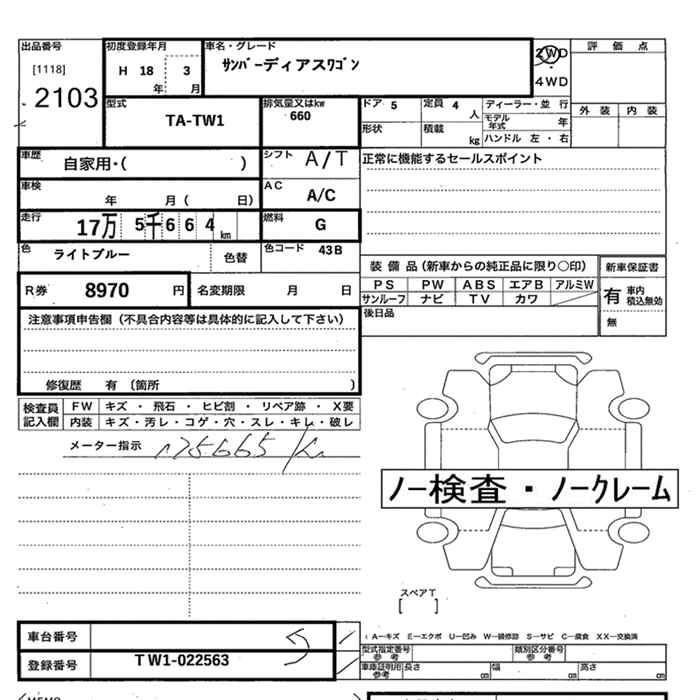 出品番号 初度登録年月 車名・グレード 評価点
[1118] H 18 3 サンバーディアスワゴン 2WD
2103 年 月 4WD
型式 排気量又はkw ドア 5 定員 4 人 ディーラー・並 行 外装 内装
TA-TW1 660 モデル年式 年
形状 積載 kg ハンドル 左・右
車歴 自家用・( ) シフト A/T 正常に機能するセールスポイント
車検 年 月 ( 日) AC A/C
走行 17万 5千 6 6 4 km 燃料 G
色 ライトブルー 色替 色コード 43B
装備品(新車からの純正品に限り○印) 新車保証書
R券 8970 円 名変期限 月 日 PS PW ABS エアB アルミW 有 車内 積込無効
サンルーフ ナビ TV カワ
注意事項申告欄(不具合内容等は具体的に記入して下さい) 後日品 無
修復歴 有 〔箇所 〕
検査員記入欄 FW キズ・飛石・ヒビ割・リペア跡・X要
内装 キズ・汚レ・コゲ・穴・スレ・キレ・破レ
メーター指示 175665 K
ノー検査・ノークレーム
スペアT
[ ]
車台番号 (A—キズ E—エクボ U—凹み W—補修跡 S—サビ C—腐食 XX—交換済
型式指定番号 参考 類別区分番号 参考
登録番号 TW1-022563 車庫証明用 参考 長さ cm 幅 cm 高さ cm
MEMO